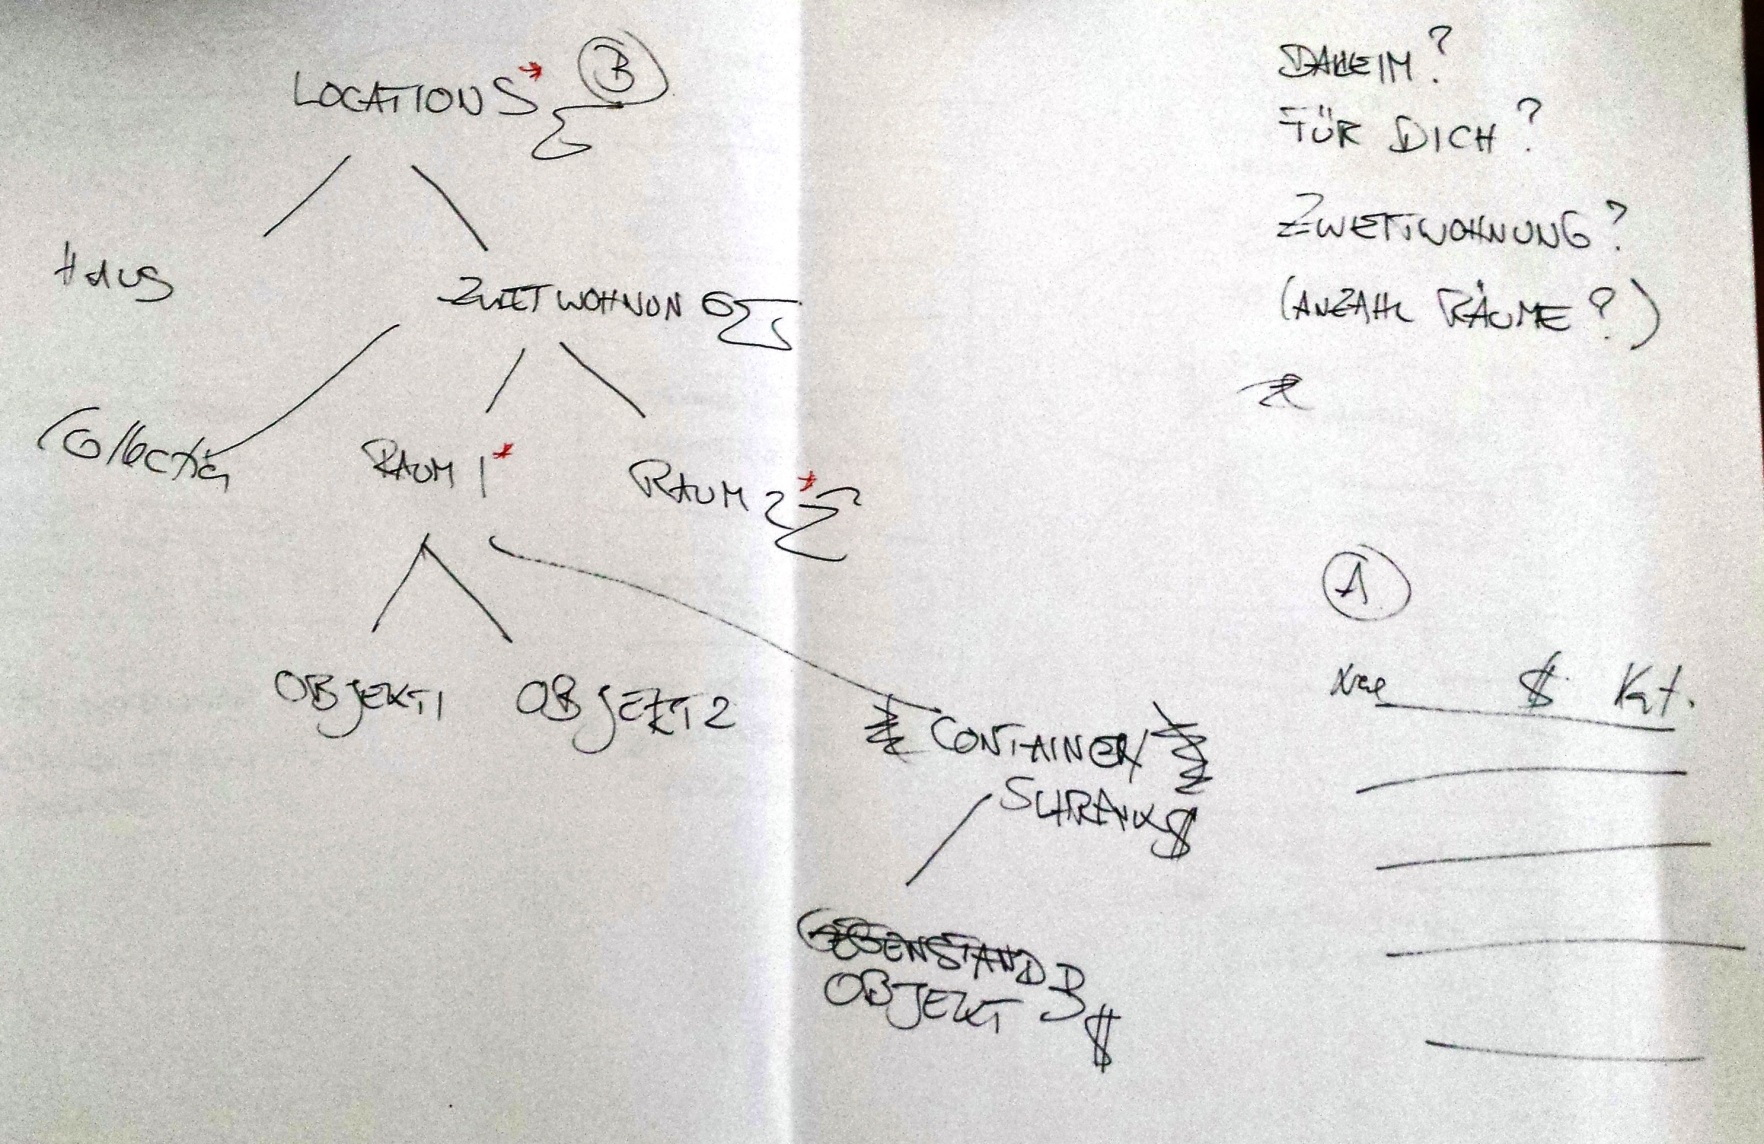 LOCATIONS* B
Σ
HAUS
ZWEITWOHNUNG Σ
Collection
RAUM 1*
RAUM 2* Σ
OBJEKT 1
OBJEKT 2
CONTAINER/
SCHRANK $
GEGENSTAND
OBJEKT 3 $
DAHEIM?
FÜR DICH?
ZWEITWOHNUNG?
(ANZAHL RÄUME?)
A
$ Kat.